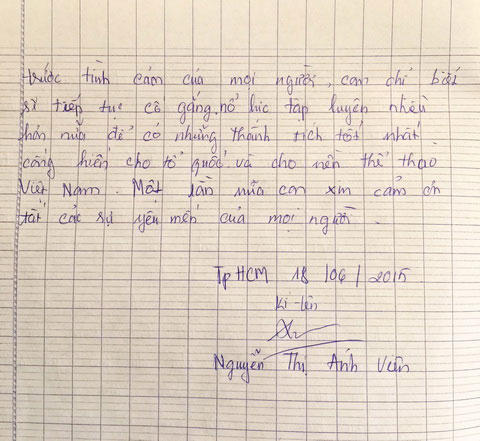 trước tình cảm của mọi người, con chỉ biết
sẽ tiếp tục cố gắng, nổ lực tập luyện nhiều
hơn nữa để có những thành tích tốt nhất
cống hiến cho tổ quốc và cho nền thể thao
Việt Nam. Một lần nữa con xin cảm ơn
tất cả sự yêu mến của mọi người.
Tp HCM 18/06/2015
Kí tên
Nguyễn Thị Ánh Viên